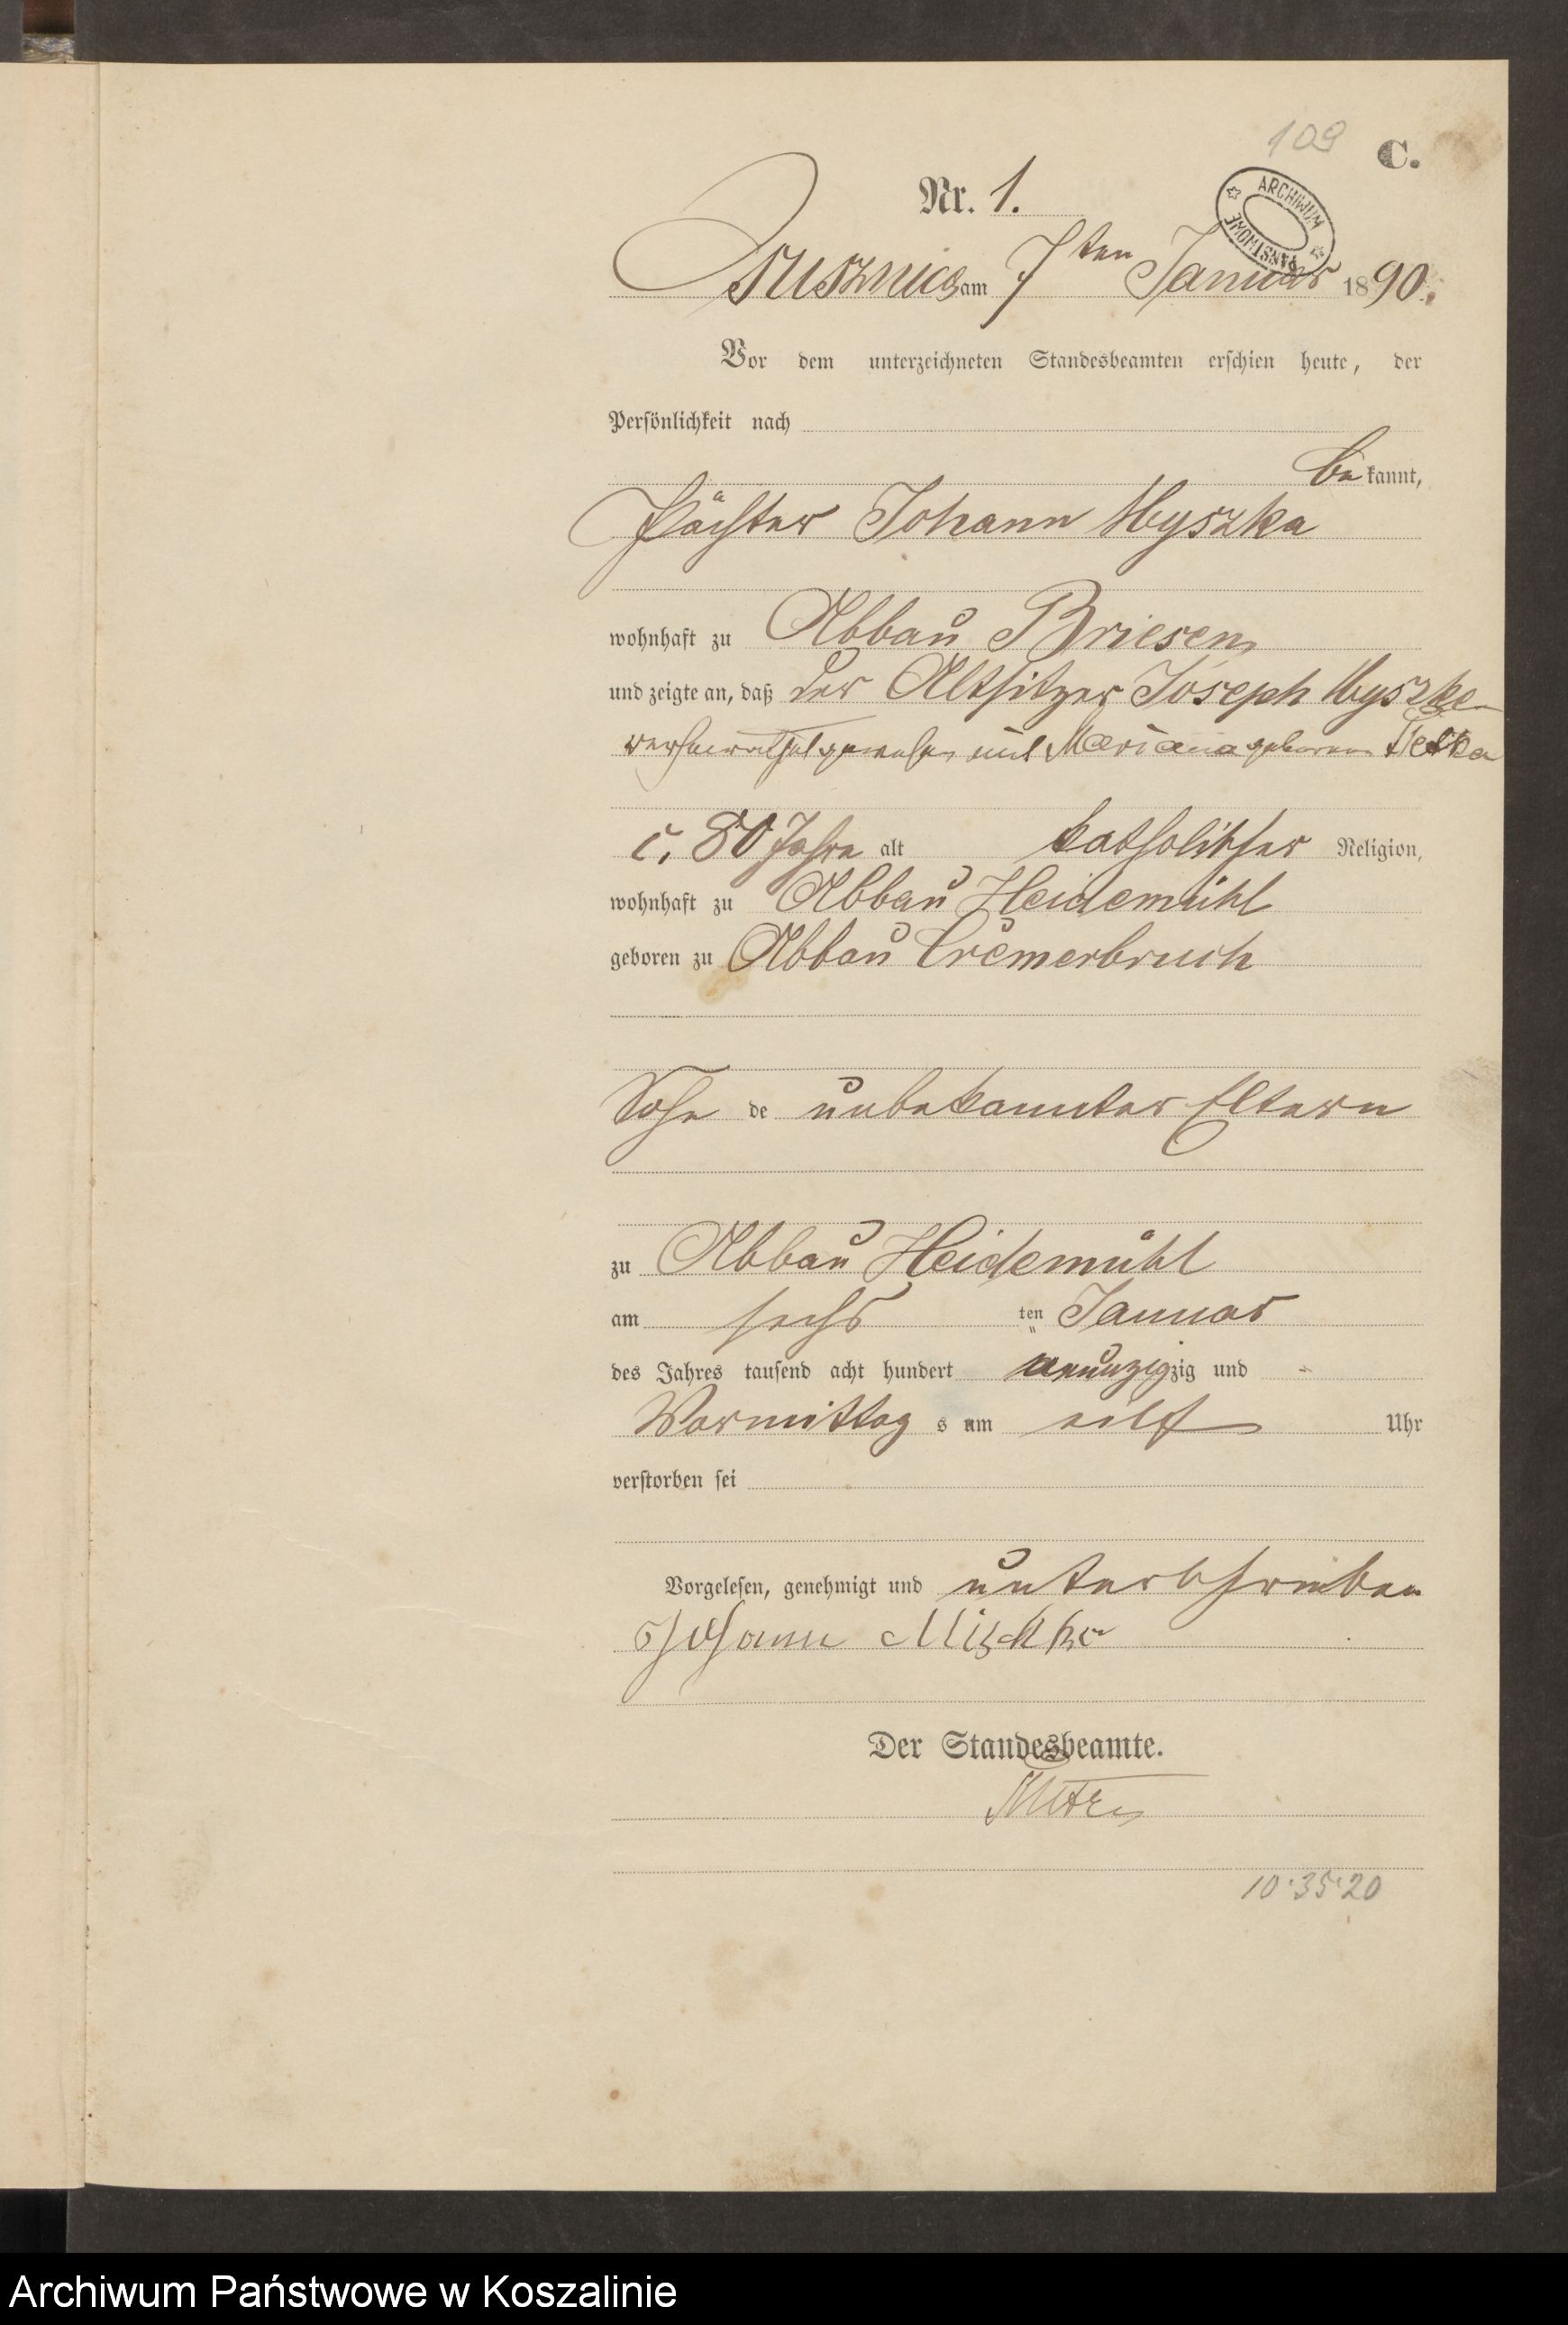 109
C.
Nr. 1.
ARCHIWUM PAŃSTWOWE
am 7ten Januar 1890.
Vor dem unterzeichneten Standesbeamten erschien heute, der
Persönlichkeit nach
bekannt,
Pächter Johann Myszka
wohnhaft zu Abbau Briesen
und zeigte an, daß der Altsitzer Joseph Myszka
verheirathet gewesen mit Mariana geborene
c. 80 Jahre alt katholischer Religion,
wohnhaft zu Abbau Heidemühl
geboren zu Abbau Cremerbruch
Sohn de unbekannter Eltern
zu Abbau Heidemühl
am sechs ten Januar
des Jahres tausend acht hundert neunzigzig und -
Vormittag s um eilf Uhr
verstorben sei
Vorgelesen, genehmigt und unterschrieben
Johann
Der Standesbeamte.
10·35·20
Archiwum Państwowe w Koszalinie